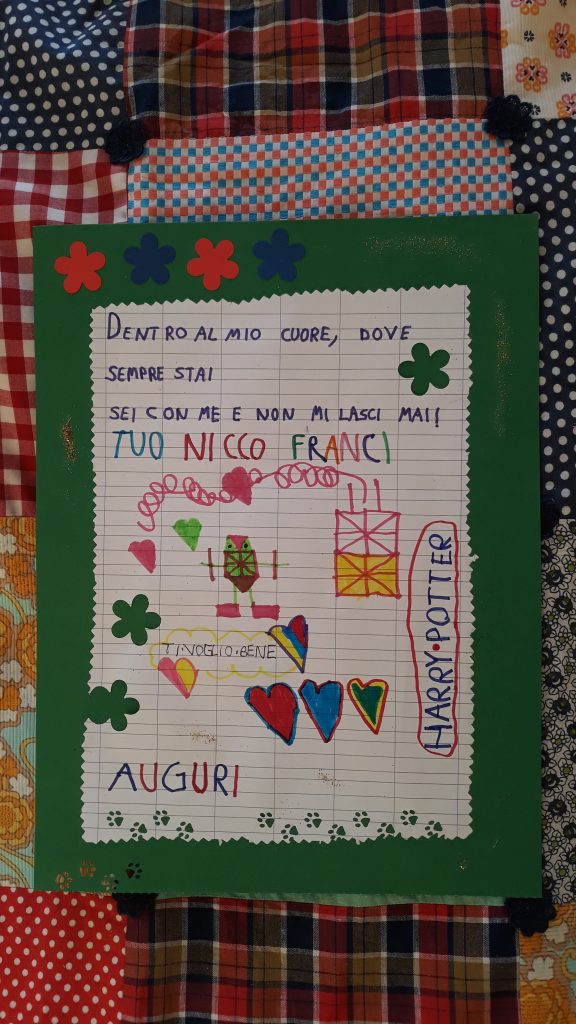 DENTRO AL MIO CUORE, DOVE
SEMPRE STAI
SEI CON ME E NON MI LASCI MAI!
TUO NICCO FRANCI
TI•VOGLIO•BENE
HARRY•POTTER
AUGURI